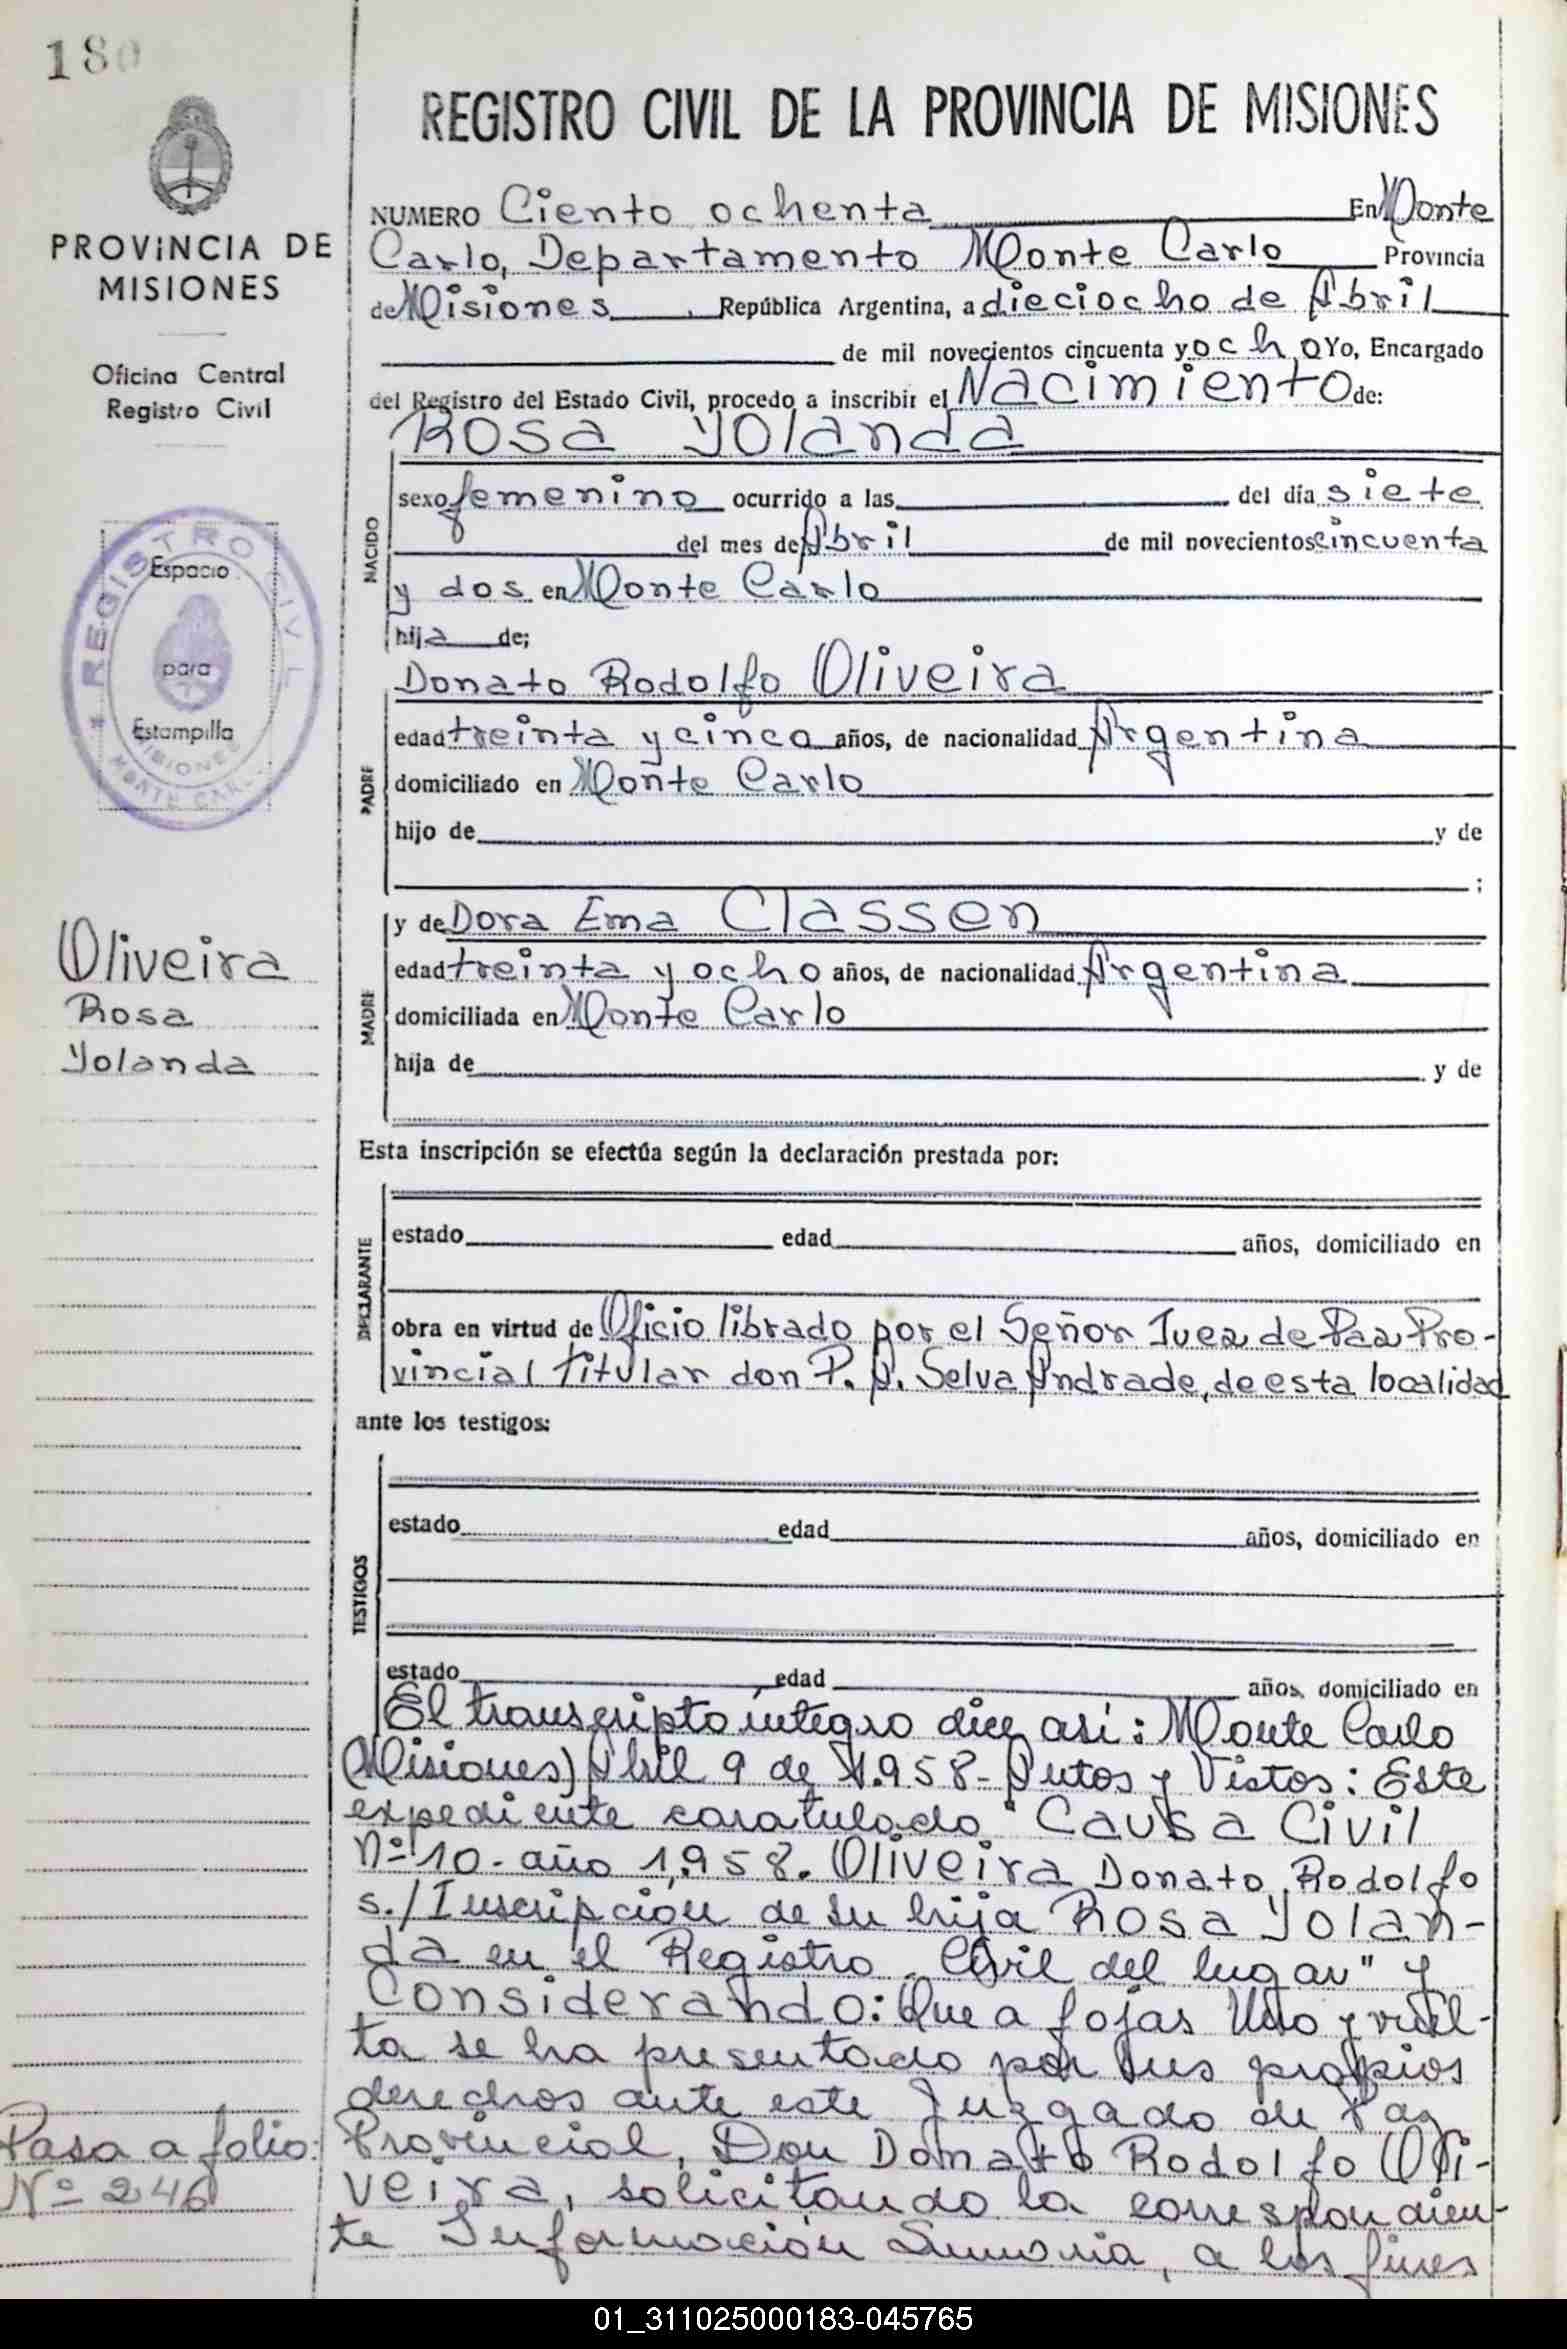 180
PROVINCIA DE
MISIONES
Oficina Central
Registro Civil
REGISTRO CIVIL
Espacio
para
Estampilla
MISIONES
MONTE CARLO
Oliveira
Rosa
Yolanda
Pasa a folio:
Nº 240
REGISTRO CIVIL DE LA PROVINCIA DE MISIONES
NUMERO Ciento ochenta En Monte
Carlo, Departamento Monte Carlo Provincia
de Misiones, República Argentina, a dieciocho de Abril
de mil novecientos cincuenta y ocho Yo, Encargado
del Registro del Estado Civil, procedo a inscribir el Nacimiento de:
Rosa Yolanda
NACIDO
sexo femenino ocurrido a las del día siete
del mes de Abril de mil novecientos cincuenta
y dos en Monte Carlo
hija de;
Donato Rodolfo Oliveira
PADRE
edad treinta y cinco años, de nacionalidad Argentina
domiciliado en Monte Carlo
hijo de y de
;
y de Dora Ema Classen
MADRE
edad treinta y ocho años, de nacionalidad Argentina
domiciliada en Monte Carlo
hija de y de
Esta inscripción se efectúa según la declaración prestada por:
DECLARANTE
estado edad años, domiciliado en
obra en virtud de Oficio librado por el Señor Juez de Paz Pro-
vincial Titular don P. A. Selva Andrade, de esta localidad
ante los testigos:
TESTIGOS
estado edad años, domiciliado en
estado edad años, domiciliado en
El transcripto íntegro dice así: Monte Carlo
(Misiones) Abril 9 de 1.958- Autos y Vistos: Este
expediente caratulado "Causa Civil
Nº 10- año 1.958. Oliveira Donato Rodolfo
s./Inscripción de su hija Rosa Yolan-
da en el Registro Civil del lugar" y
Considerando: Que a fojas Uno y vuel-
ta se ha presentado por sus propios
derechos ante este Juzgado de Paz
Provincial, Don Donato Rodolfo Oli-
veira, solicitando la correspondien-
te Información Sumaria, a los fines
01_311025000183-045765